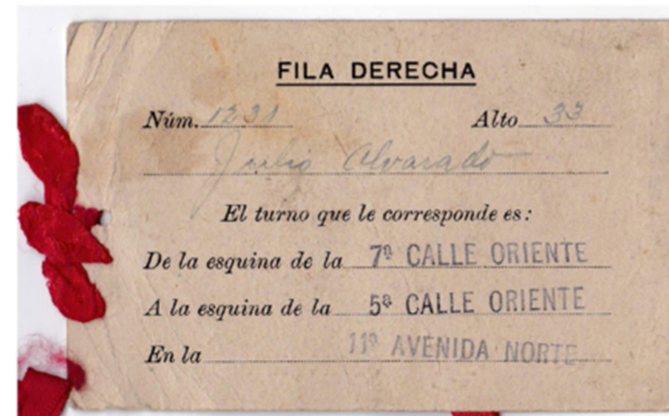 FILA DERECHA
Núm. 1231 Alto 33
Julio Alvarado
El turno que le corresponde es:
De la esquina de la 7ª CALLE ORIENTE
A la esquina de la 5ª CALLE ORIENTE
En la 11ª AVENIDA NORTE